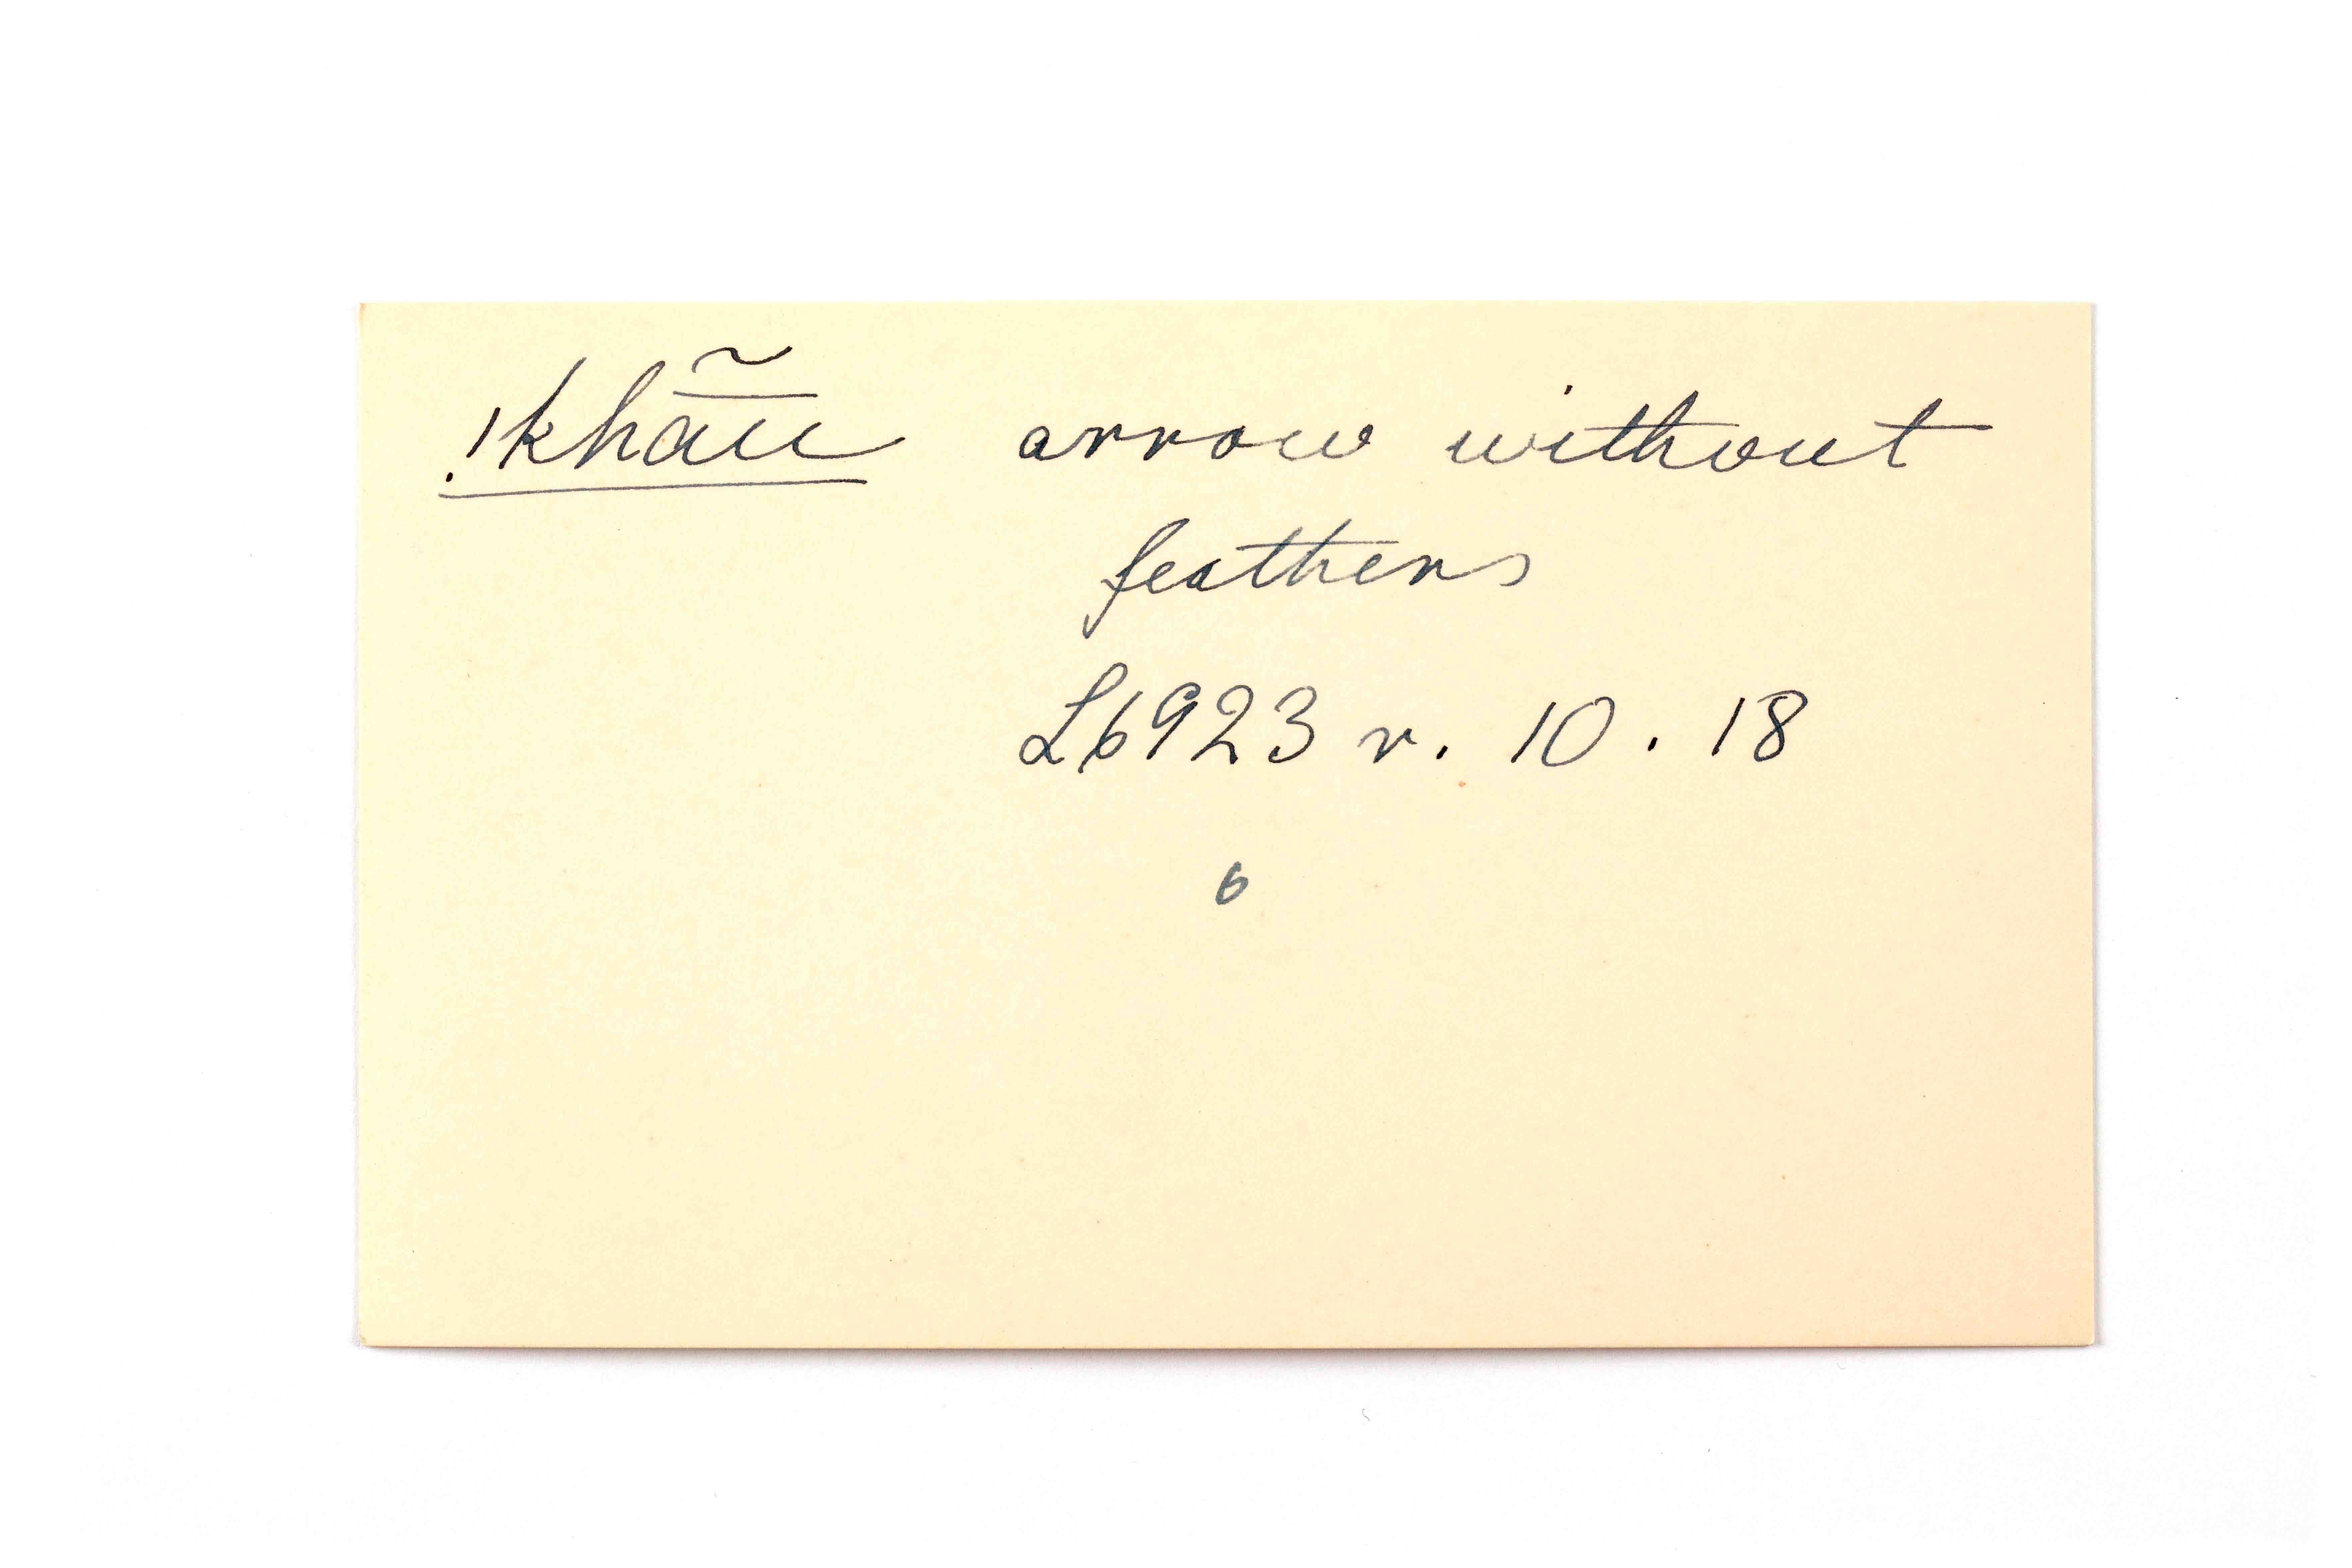 !khā̃u arrow without
feathers
L6923 r. 10. 18
6